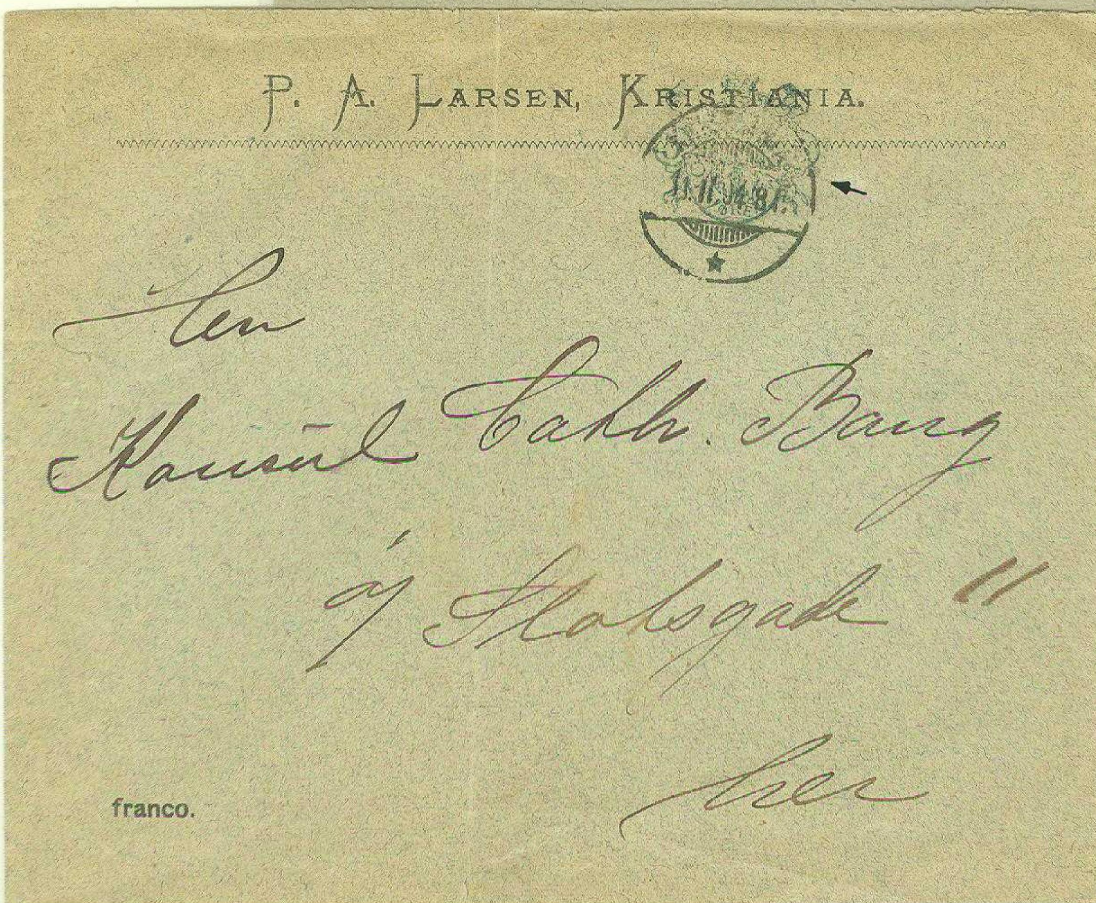 P. A. LARSEN, KRISTIANIA.
11.11.04.8
ØRE
Herr
Konsul Cathr. Bang
Slotsgade 11
her
franco.